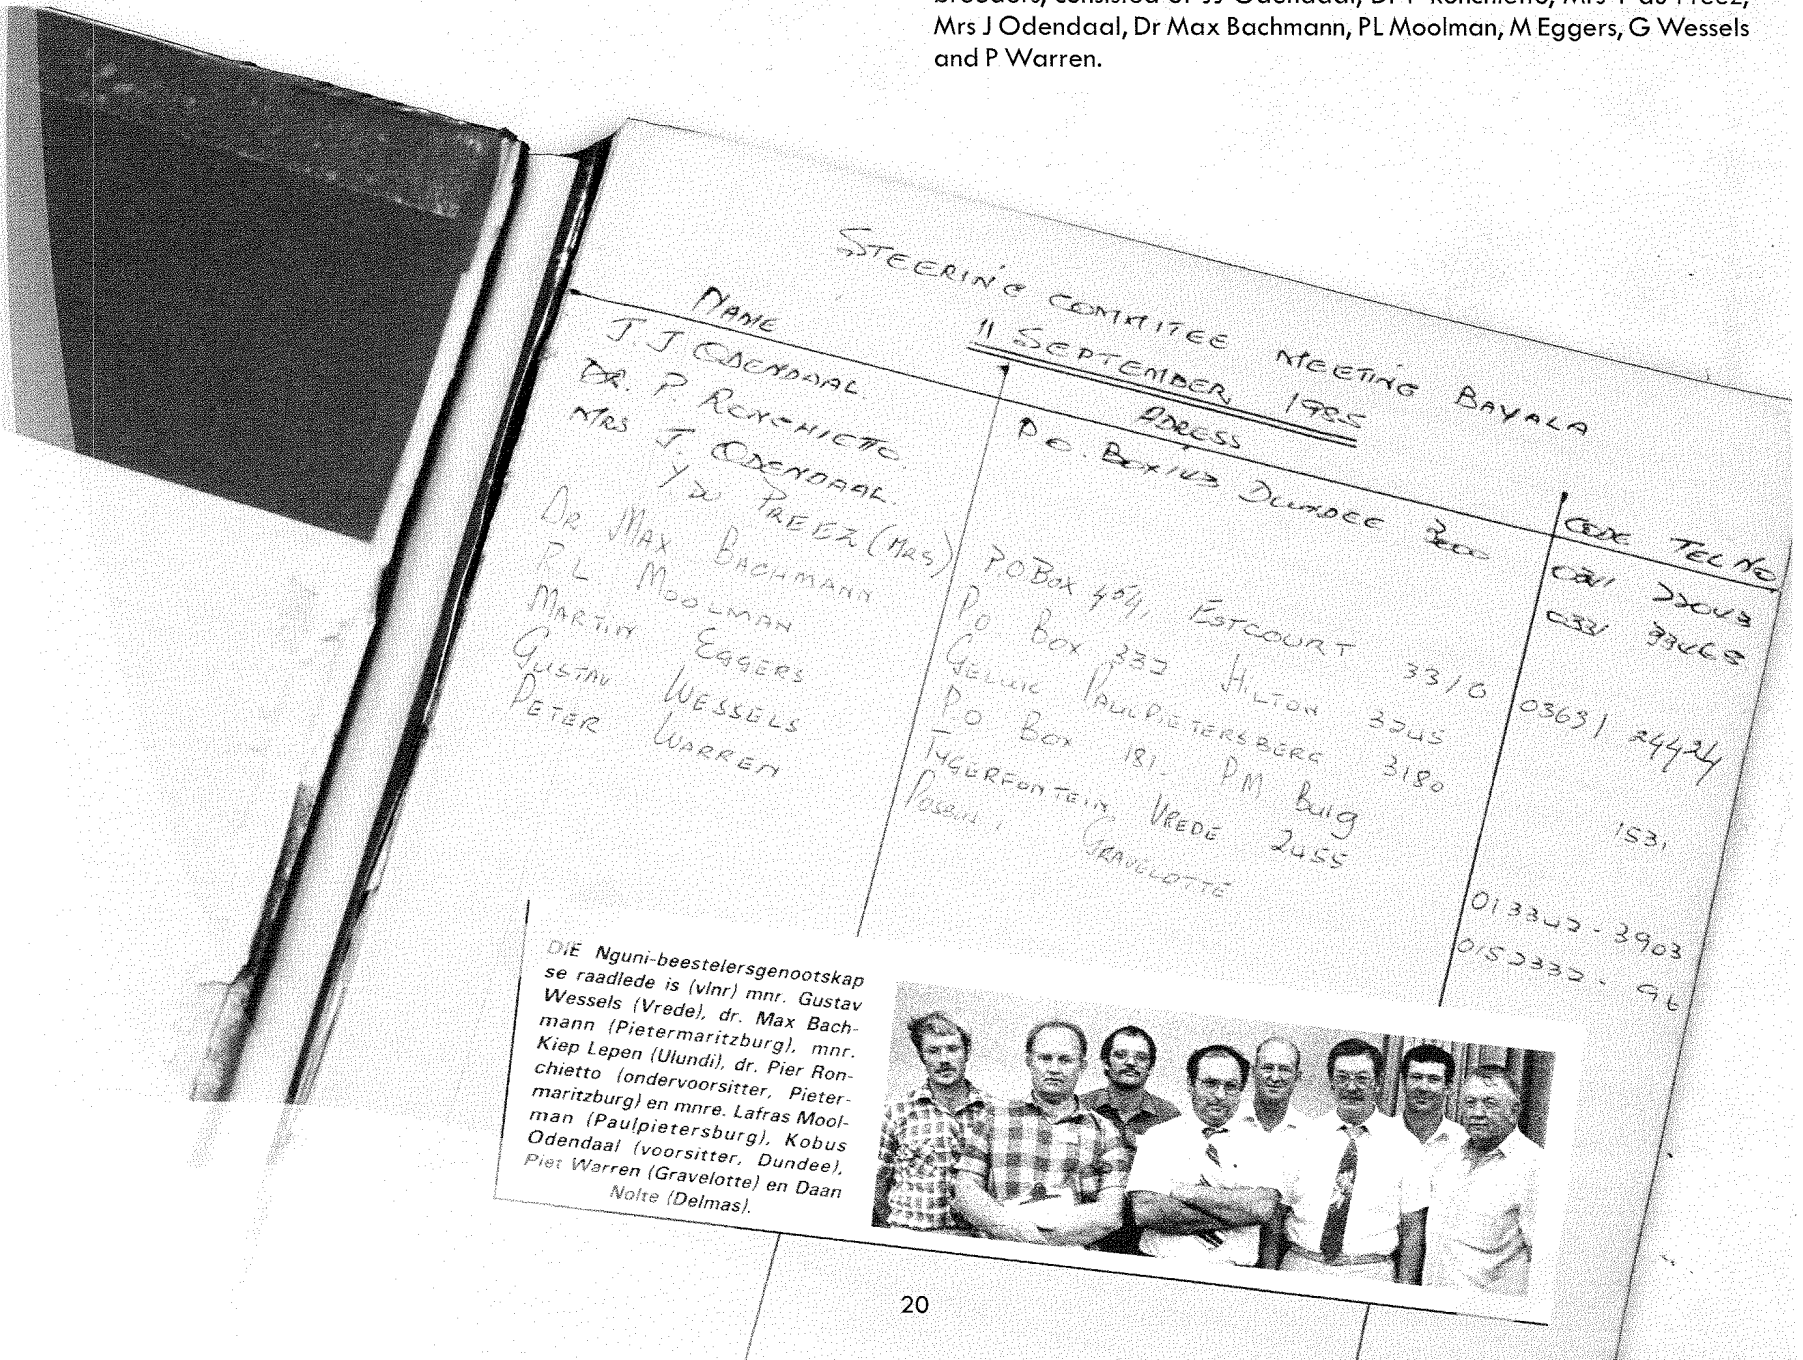 breeders, consisted of JJ Odendaal, Dr P Ronchietto, Mrs Y du Preez,
Mrs J Odendaal, Dr Max Bachmann, PL Moolman, M Eggers, G Wessels
and P Warren.
STEERING COMMITEE MEETING BAYALA
11 SEPTEMBER 1985
NAME ADRESS CODE TEL NO
J. J ODENDAAL P.O. BOX 143 DUNDEE 3000 0341 22043
DR. P. RONCHIETTO. 0331
MRS J. ODENDAAL.
Y DU PREEZ (MRS) P.O Box 454, ESTCOURT 3310 03631 24424
DR MAX BACHMANN PO BOX 332 HILTON 3245
P L MOOLMAN GELUK PAULPIETERSBERG 3180 1531
MARTIN EGGERS P.O BOX 181. PM Burg
GUSTAV WESSELS TYGERFONTEIN VREDE 2455 013342-3903
PETER WARREN Posbus 1 GRAVELOTTE 0152332-
DIE Nguni-beestelersgenootskap
se raadlede is (vlnr) mnr. Gustav
Wessels (Vrede), dr. Max Bach-
mann (Pietermaritzburg), mnr.
Kiep Lepen (Ulundi), dr. Pier Ron-
chietto (ondervoorsitter, Pieter-
maritzburg) en mnre. Lafras Mool-
man (Paulpietersburg), Kobus
Odendaal (voorsitter, Dundee),
Piet Warren (Gravelotte) en Daan
Nolte (Delmas).
20